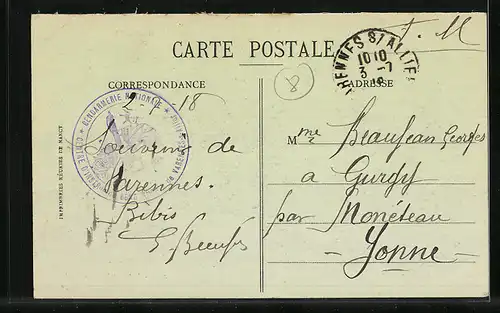 F. M
CARTE POSTALE
CORRESPONDANCE
ADRESSE
VARENNES S/ ALLIER
10 10
3 - 7
18
8
2-7-18
GENDARMERIE NATIONALE
Souvenirs de
Varennes.
Bibis
Mme Beaujean Georges
a Gurgy
par Monéteau
Yonne
IMPRIMERIES RÉUNIES DE NANCY